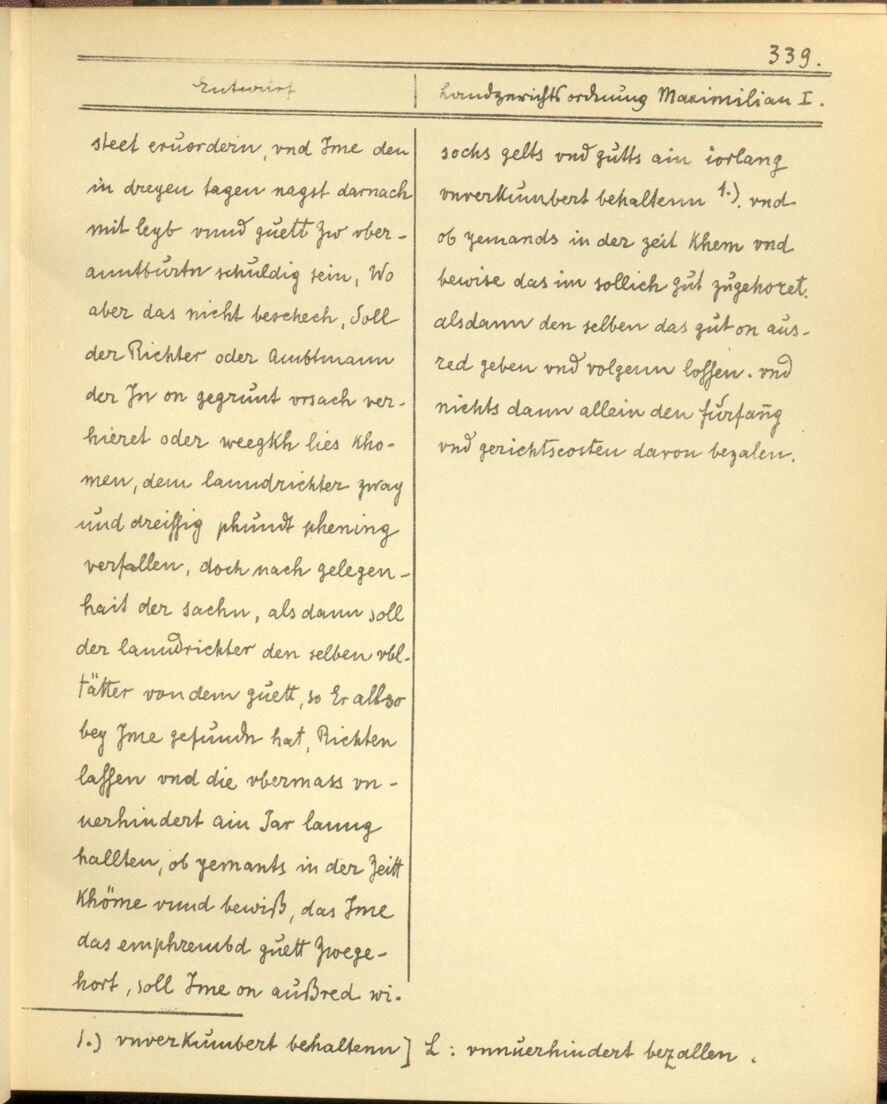 339.
Entwurf
Landgerichtsordnung Maximilian I.
steet eruordern, vnd Jme den
in dreyen tagen nagst darnach
mit leyb vnnd guett zw vber-
anntburtn schuldig sein, Wo
aber das nicht beschech, Soll
der Richter oder Ambtmann
der Jn on gegrunt vrsach ver-
hieret oder weegkh lies kho-
men, dem lanndrichter zway
und dreissig phundt phening
verfallen, doch nach gelegen-
hait der sachn, als dann soll
der lanndrichter den selben vbl-
tätter von dem guett, so Er allso
bey Jme gefundn hat, Richten
lassen vnd die vbermass vn-
uerhindert ain Jar lanng
hallten, ob yemants in der Zeitt
khöme vnnd bewiß, das Jme
das emphrembd guett zwege-
hort, soll Jme on außred wi-
sochs gelts vnd gutts ain iorlang
vnverkumbert behaltenn 1.). vnd
ob yemands in der zeit khem vnd
bewise das im sollich gut zugehoret.
alsdann den selben das gut on aus-
red geben vnd volgenn lossen. vnd
nichts dann allein den fürfang
vnd gerichtscosten davon bezalen.
1.) vnverkumbert behaltenn] L: vnnuerhindert bezallen.